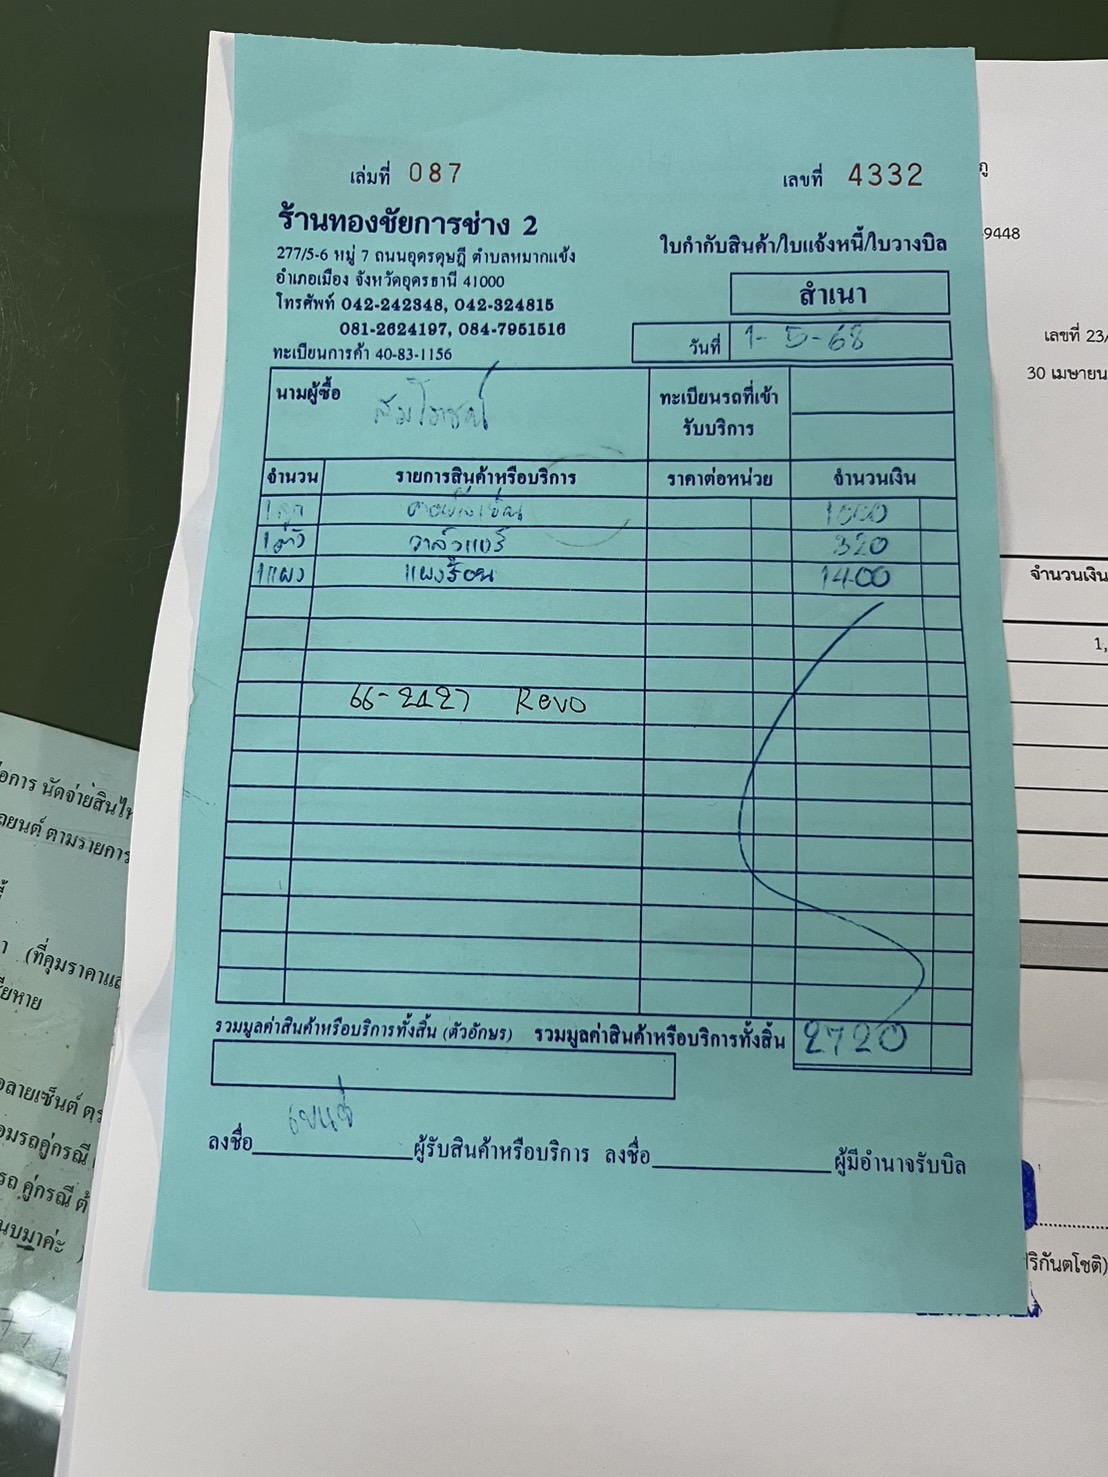 เล่มที่ 087
เลขที่ 4332
ร้านทองชัยการช่าง 2
277/5-6 หมู่ 7 ถนนอุดรดุษฎี ตำบลหมากแข้ง
อำเภอเมือง จังหวัดอุดรธานี 41000
โทรศัพท์ 042-242348, 042-324815
081-2624197, 084-7951516
ทะเบียนการค้า 40-83-1156
ใบกำกับสินค้า/ใบแจ้งหนี้/ใบวางบิล
สำเนา
วันที่ 1-5-68
นามผู้ซื้อ สมโภชน์
ทะเบียนรถที่เข้า
รับบริการ
จำนวน รายการสินค้าหรือบริการ ราคาต่อหน่วย จำนวนเงิน
1ลูก 1000
1ตัว วาล์วแอร์ 320
1แผง แผงร้อน 1400
66-2127 Revo
รวมมูลค่าสินค้าหรือบริการทั้งสิ้น (ตัวอักษร) รวมมูลค่าสินค้าหรือบริการทั้งสิ้น 2720
ลงชื่อ ผู้รับสินค้าหรือบริการ ลงชื่อ ผู้มีอำนาจรับบิล
9448
เลขที่ 23/
30 เมษายน
จำนวนเงิน
1,
ริกันตโชติ)
อการ นัดจ่ายสินไห
ถยนต์ ตามรายการ
(ที่คุมราคาแล
ียหาย
อลายเซ็นต์ ตร
อมรถคู่กรณี
รถ คู่กรณี ต้
นบมาค่ะ )